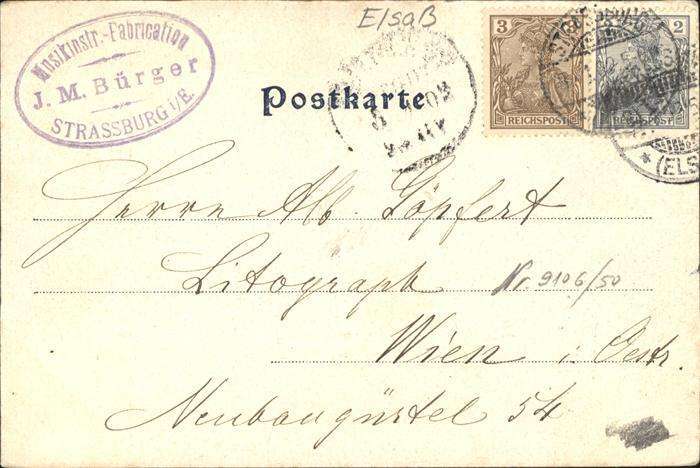 Elsaß
Musikinstr.-Fabrication
J. M. Bürger
STRASSBURG i/E.
Postkarte
3
REICHSPOST
2
REICHSPOST
* (ELS
Herrn Alb. Göpfert
Litograph
Nr. 9106/50
Wien i. Oestr.
Neubaugürtel 54